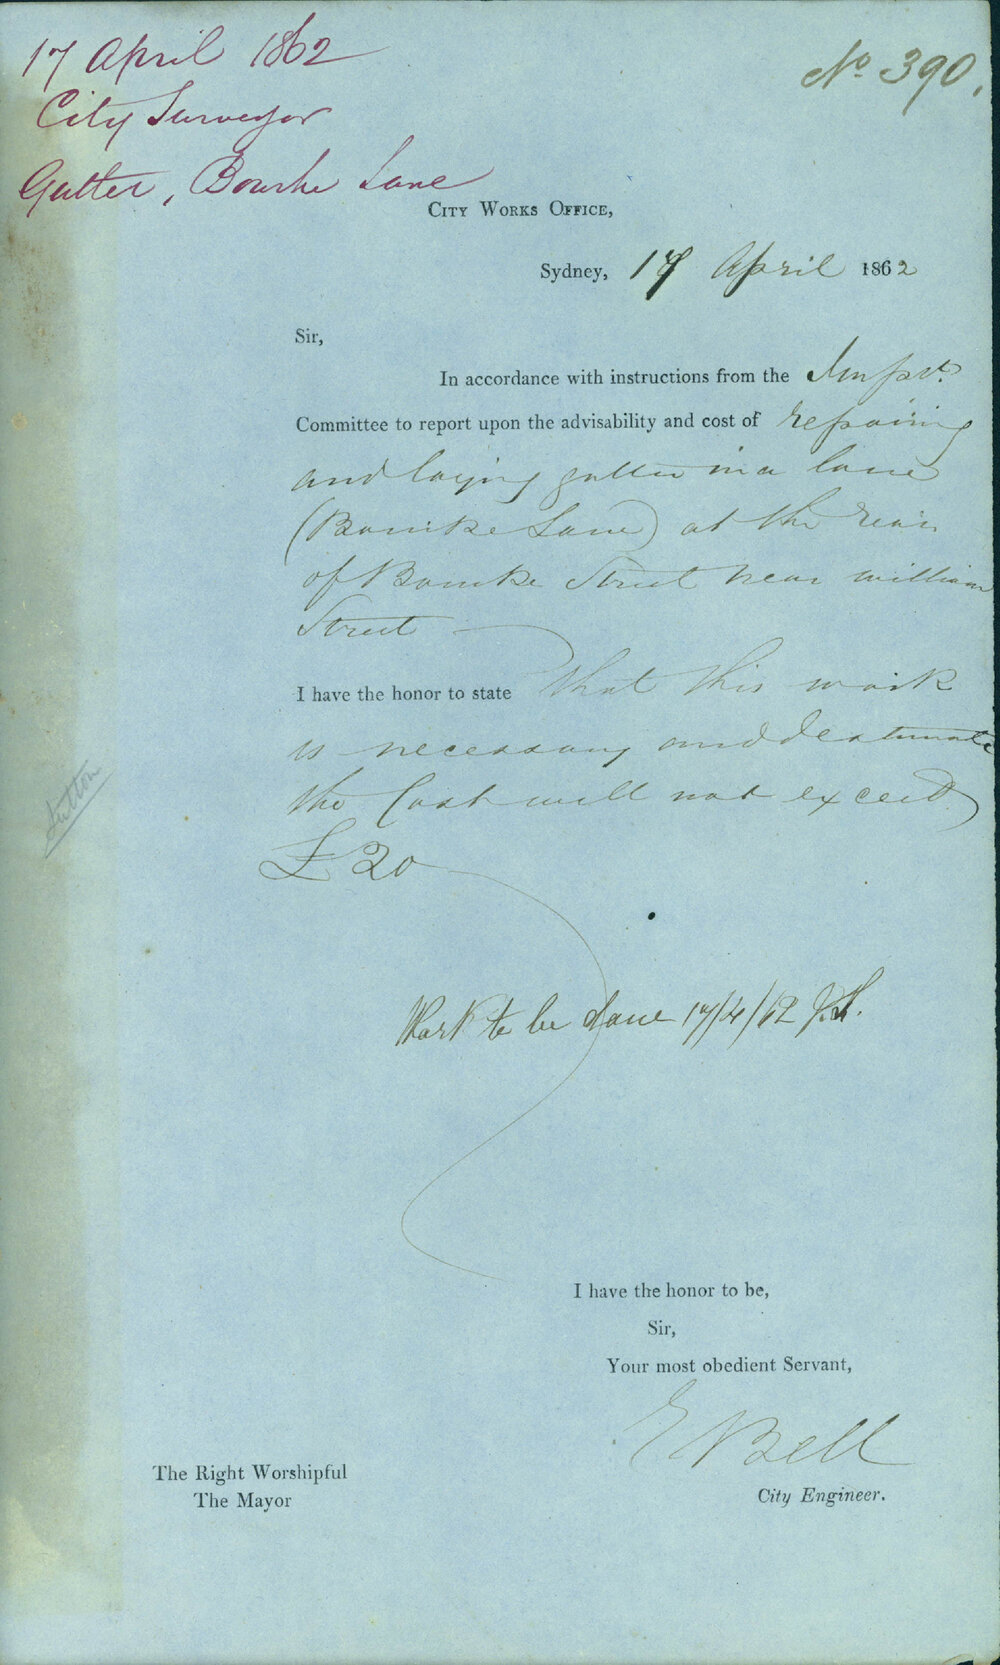 17 April 1862
City Surveyor
Gutter, Bourke Lane
No 390.
City Works Office,
Sydney, 17 April 1862
Sir,
In accordance with instructions from the Impvt.
Committee to report upon the advisability and cost of repairing
and laying gutter in a lane
(Bourke Lane) at the rear
of Bourke Street near william
Street
I have the honor to state that this work
is necessary and I estimate
the Cost will not exceed
£20
Work to be done 17/4/62
I have the honor to be,
Sir,
Your most obedient Servant,
E Bell
City Engineer.
The Right Worshipful
The Mayor
Sutton